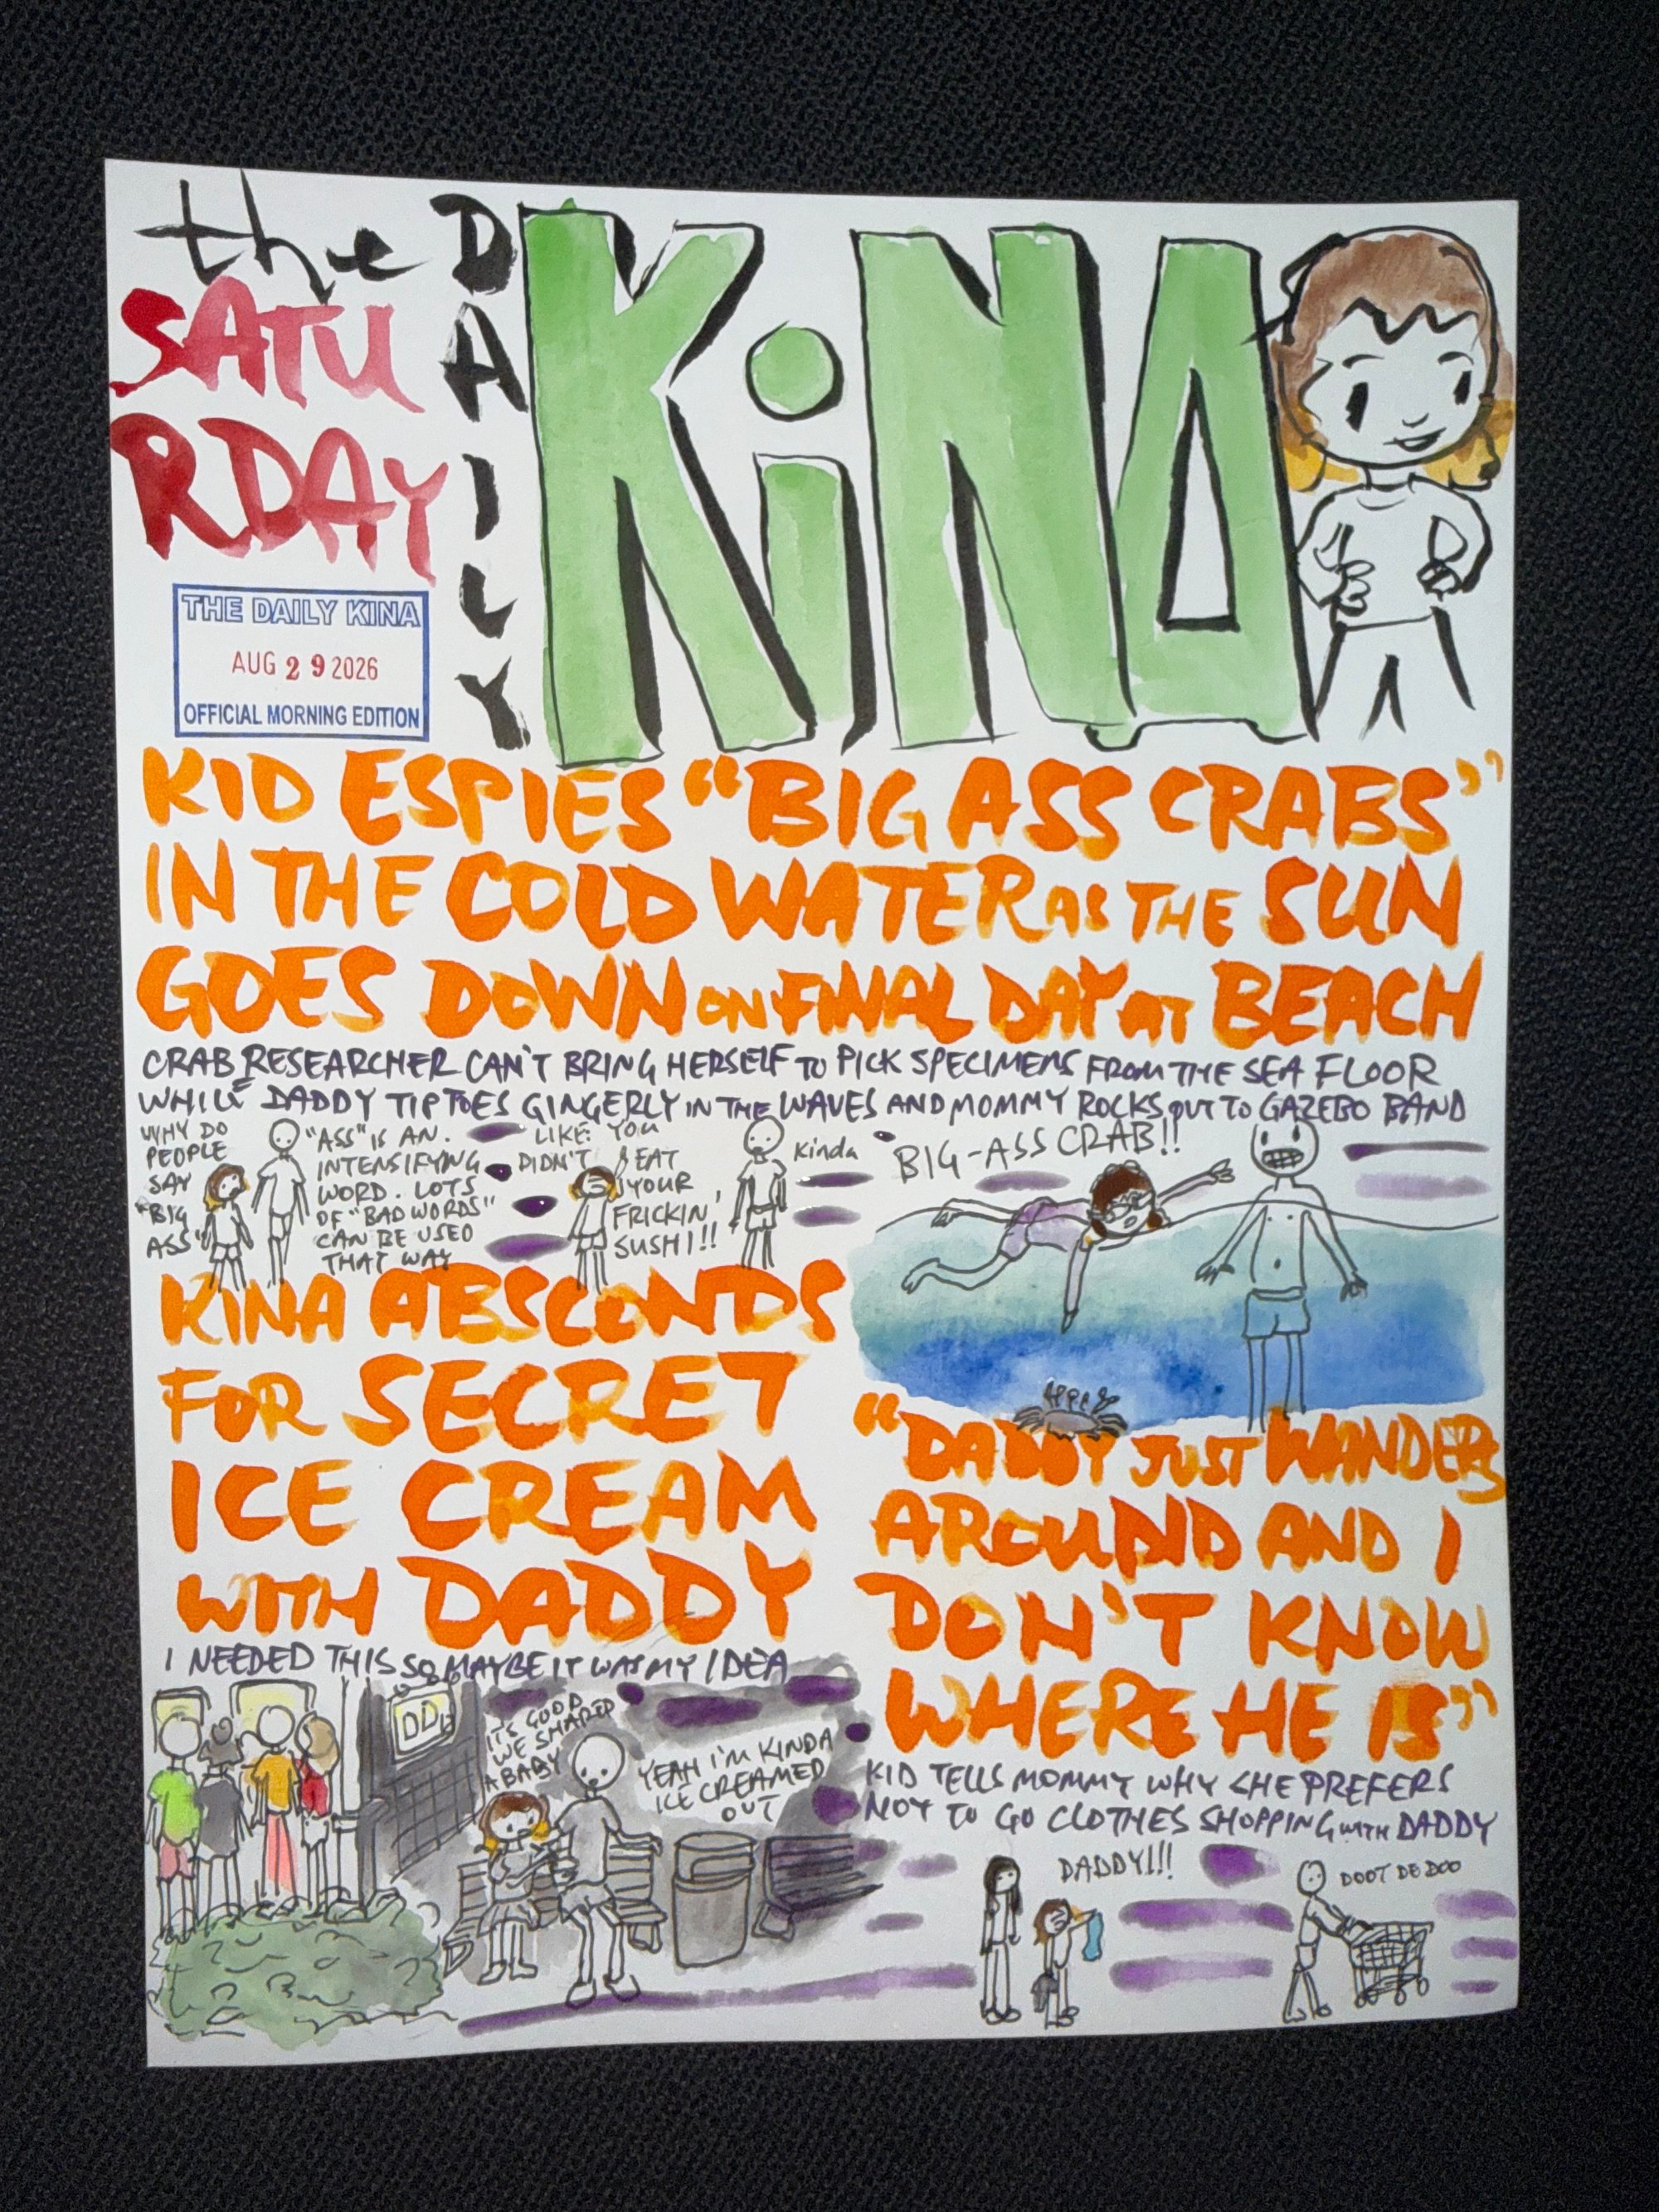 the
SATU
RDAY
DAILY
KiNA
THE DAILY KINA
AUG 29 2026
OFFICIAL MORNING EDITION
KID ESPIES "BIG ASS CRABS"
IN THE COLD WATER AS THE SUN
GOES DOWN ON FINAL DAY AT BEACH
CRAB RESEARCHER CAN'T BRING HERSELF TO PICK SPECIMENS FROM THE SEA FLOOR
WHILE DADDY TIPTOES GINGERLY IN THE WAVES AND MOMMY ROCKS OUT TO GAZEBO BAND
WHY DO
PEOPLE
SAY
"BIG
ASS"
"ASS" IS AN
INTENSIFYING
WORD. LOTS
OF "BAD WORDS"
CAN BE USED
THAT WAY
LIKE YOU
DIDN'T EAT
YOUR
FRICKIN'
SUSHI!!
Kinda
BIG-ASS CRAB!!
KINA ABSCONDS
FOR SECRET
ICE CREAM
WITH DADDY
I NEEDED THIS SO MAYBE IT WAS MY IDEA
DD
IT'S GOOD
WE SHARED
A BABY
YEAH I'M KINDA
ICE CREAMED
OUT
"DADDY JUST WANDERS
AROUND AND I
DON'T KNOW
WHERE HE IS"
KID TELLS MOMMY WHY SHE PREFERS
NOT TO GO CLOTHES SHOPPING WITH DADDY
DADDY!!!
DOOT DE DOO